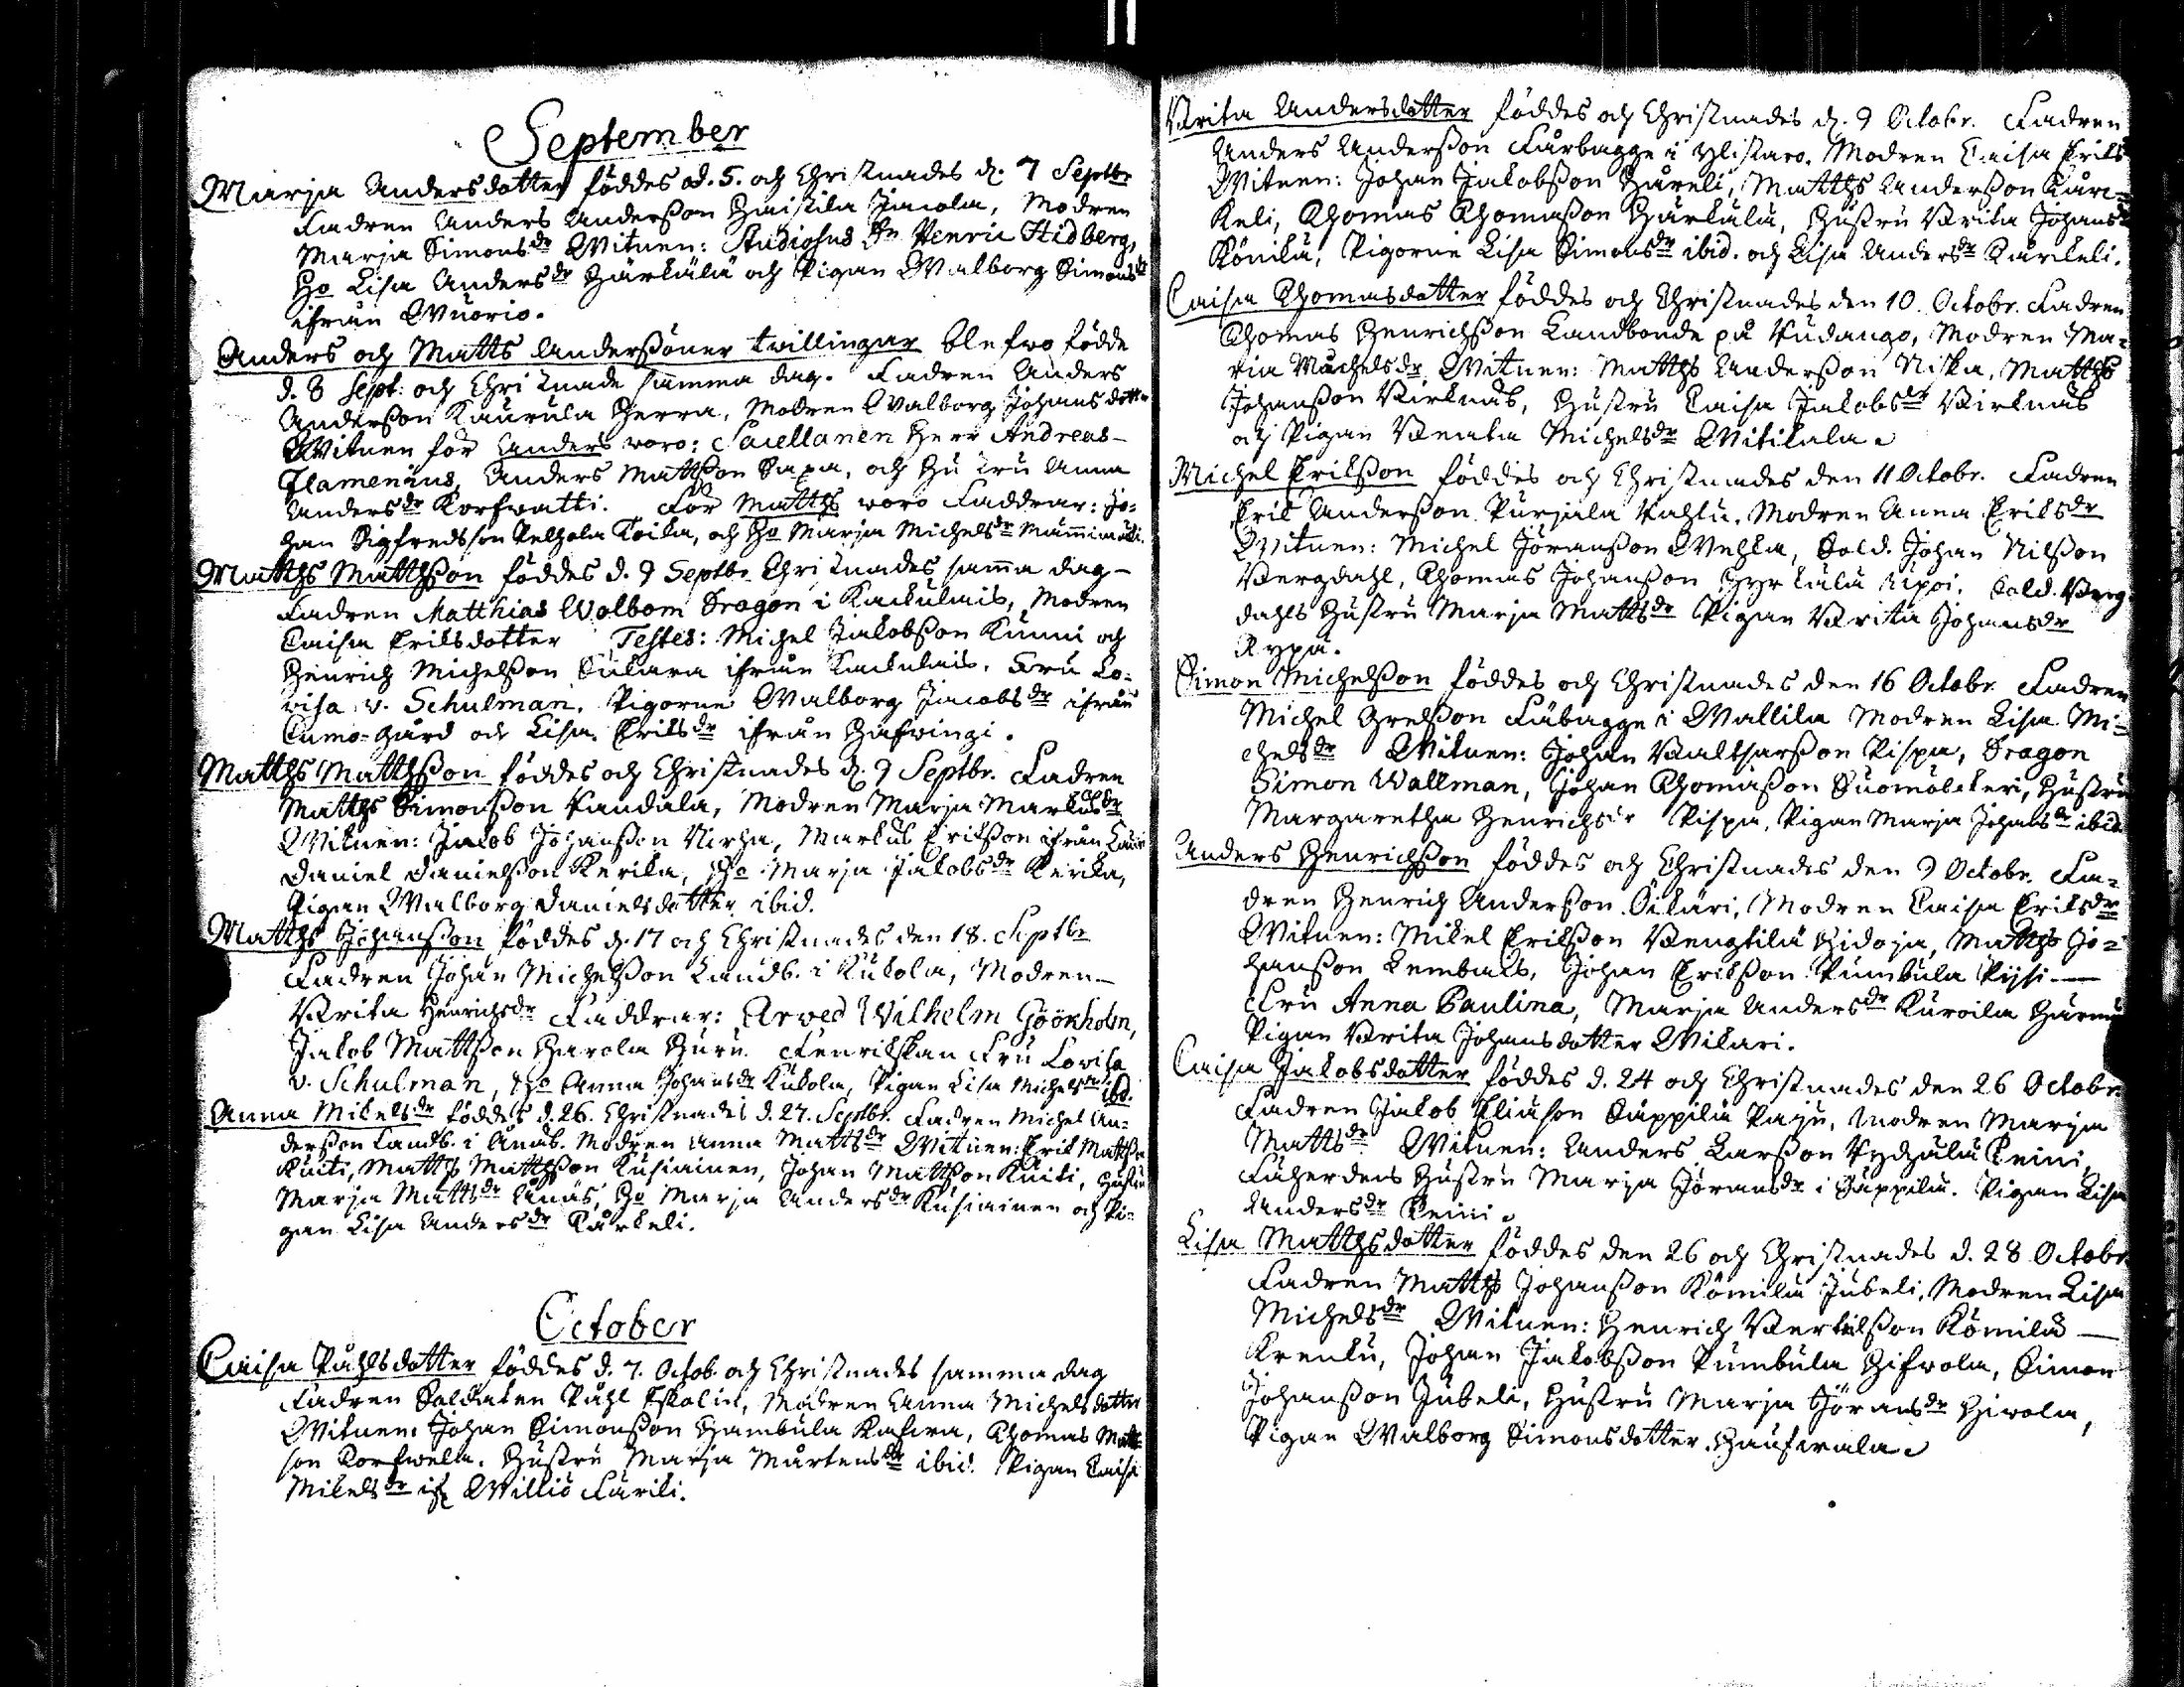 September
Marja Andersdotter föddes d. 5. och Christnades d. 7 Septbr
Fadren Anders Anderßon Haistila Jacola, Modren
Marja Simonsdr Witnen: Studiosus Hr Henric Hidberg,
Ho Lisa Andersdr Härkälä och Pigan Walborg Simonsdr
ifrån Wuorio.
Anders och Matts Anderßöner twillingar blefwo födde
d. 8 Sept: och Christnade samma dag. Fadren Anders
Anderßon Kaurula Herra, Modren Walborg Johansdotter
Witnen för Anders woro: Sacellanen Herr Andreas
Flamenius, Anders Mattßon Saxa, och Hustru Anna
Andersdr Korfwatti. För Matths woro Faddrar: Jo-
han Sigfredsson Kelhola Koika, och Ho Marja Michelsdr
Matths Matthßon föddes d. 9 Septbr Christnades sama dag
Fadren Matthias Wolbom Dragon i Kackulais, Modren
Caisa Eriksdotter Testes: Michel Jakobßon Kunni och
Henrich Michelßon ifrån Kackulais. Fru Lo-
visa v. Schulman, Pigorne Walborg Jacobsdr ifrån
Cumo-gård och Lisa Eriksdr ifrån Hafwingi.
Matths Matthßon föddes och Christnades d. 9 Septbr. Fadren
Matths Simonßon Kandala, Modren Marja Markusdr
Witnen: Jacob Johanßon Nirha, Markus Erikßon ifrån
Daniel Danielßon Kerika, Ho Marja Jakobsdr Kerika,
Pigan Walborg Danielsdotter ibid.
Matths Johanßon föddes d. 17 och Christnades den 18. Septbr
Fadren Johan Michelßon Landb. i Kukola, Modren
Brita Henrichsdr Faddrar: Arved Wilhelm Göökholm,
Jakob Mattßon Harola Huru. Fenrikskan Fru Lovisa
v. Schulman, Ho Anna Johansdr Kukola, Pigan Lisa Michelsdr ibd.
Anna Mikelsdr föddes d. 26. Christnades d. 27. Septbr. Fadren Michel An-
derßon Landb. i Anäs. Modren Anna Mattsdr Witnen: Erik Mattßon
Kuiti, Matths Matthßon Kusiainen, Johan Mattßon Kuiti, Hustru
Marja Mattsdr Anäs, Ho Marja Andersdr Kusiainen och Pi-
gan Lisa Andersdr Kärkeli.
October
Caisa Påhlsdotter föddes d. 7. Octob. och Christnades samma dag
Fadren Soldaten Påhl Eskolin, Modren Anna Michelsdotter
Witnen: Johan Simonßon Hambula Kafwa, Thomas Matt-
son Korfwela. Hustru Marja Mårtensdr ibid. Pigan Caisa
Mikelsdr ifr Willio Färiki.
Brita Andersdotter föddes och Christnades d. 9 Octobr. Fadren
Anders Anderßon Fårbagge i Ylistaro. Modren Caisa Eriks
Witnen: Johan Jakobßon Häreli, Matths Anderßon Kärc-
keli, Thomas Thomaßon Härkälä, Hustru Brita Johansdr
Könilä, Pigorne Lisa Simonsdr ibid. och Lisa Andersdr Kärckeli.
Caisa Thomasdotter föddes och Christnades den 10. Octobr. Fadren
Thomas Henrichßon Landbonde på Pudango, Modren Ma-
ria Michelsdr, Witnen: Matths Anderßon Niska, Matths
Johanßon Birknäs, Hustru Caisa Jakobsdr Birknäs
och Pigan Beata Michelsdr Witikala.
Michel Erikßon föddes och Christnades den 11 Octobr. Fadren
Erik Anderßon Purjala Kahlu. Modren Anna Eriksdr
Witnen: Michel Jöranßon Wehka, Sold. Johan Nilßon
Bergdahl, Thomas Johanßon Hyrkälä Äipoi. Sold. Berg-
dahls Hustru Marja Mattsdr Pigan Brita Johansdr
Rypä.
Simon Michelßon föddes och Christnades den 16 Octobr. Fadren
Michel Grelßon Fäbagge i Wallila Modren Lisa Mi-
chelsdr Witnen: Johan Baltharßon Pispa, Dragon
Simon Wallman, Johan Thomaßon Suomälckeri, Hustru
Margaretha Henrichsdr Pispa, Pigan Marja Johansdr ibid.
Anders Henrichßon föddes och Christnades den 9 Octobr. Fa-
dren Henrich Anderßon Oikari, Modren Caisa Eriksdr
Witnen: Mikel Erikßon Bengtilä Widoja, Matths Jo-
hanßon Lembals, Johan Erikßon Pumbula Pijsi
Fru Anna Paulina, Marja Andersdr Kuroila Hurmi
Pigan Brita Johansdotter Wikari.
Caisa Jakobsdotter föddes d. 24 och Christnades den 26 Octobr.
Fadren Jakob Eliäson Säppilä Paju, Modren Marja
Mattsdr Witnen: Anders Larßon Pydhälä Peini,
Fäherdens Hustru Marja Jöransdr i Säppilä. Pigan Lisa
Andersdr Peini.
Lisa Matthsdotter föddes den 26 och Christnades d. 28 Octobr
Fadren Matths Johanßon Kömilä Jubeli, Modren Lisa
Michelsdr Witnen: Henrich Bertilßon Kömilä
Krenku, Johan Jakobßon Pumbula Hifwola, Simon
Johanßon Jubeli, Hustru Marja Jöransdr Hiwola,
Pigan Walborg Simonsdotter Haufwala.